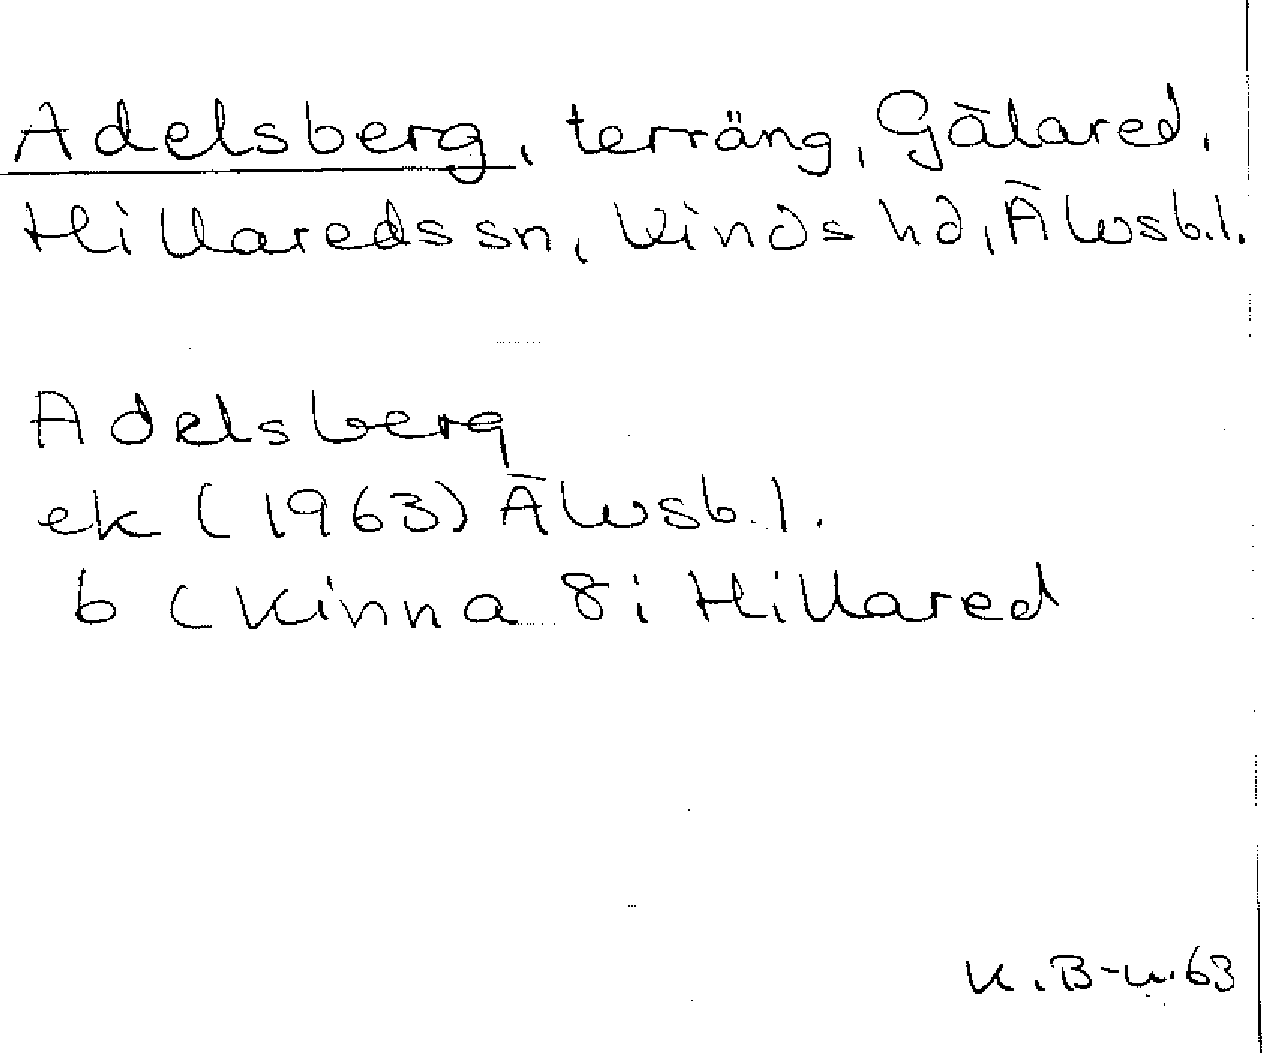 Adelsberg, terräng, Gälared,
Hillareds sn, Kinds hd, Älvsb.l.
Adelsberg
ek (1963) Älvsb.l.
b (Kinna 8i Hillared
K.B-u.63